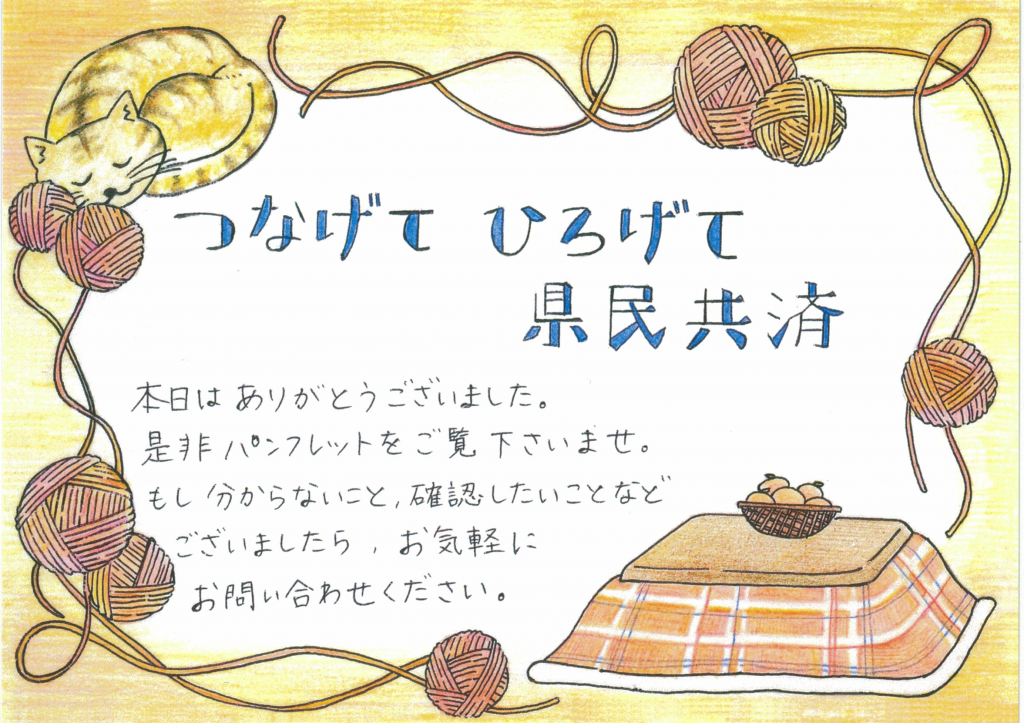 つなげて ひろげて
県民共済
本日は ありがとうございました。
是非 パンフレットを ご覧 下さいませ。
もし 分からないこと, 確認したいことなど
ございましたら , お気軽に
お問い合わせください。